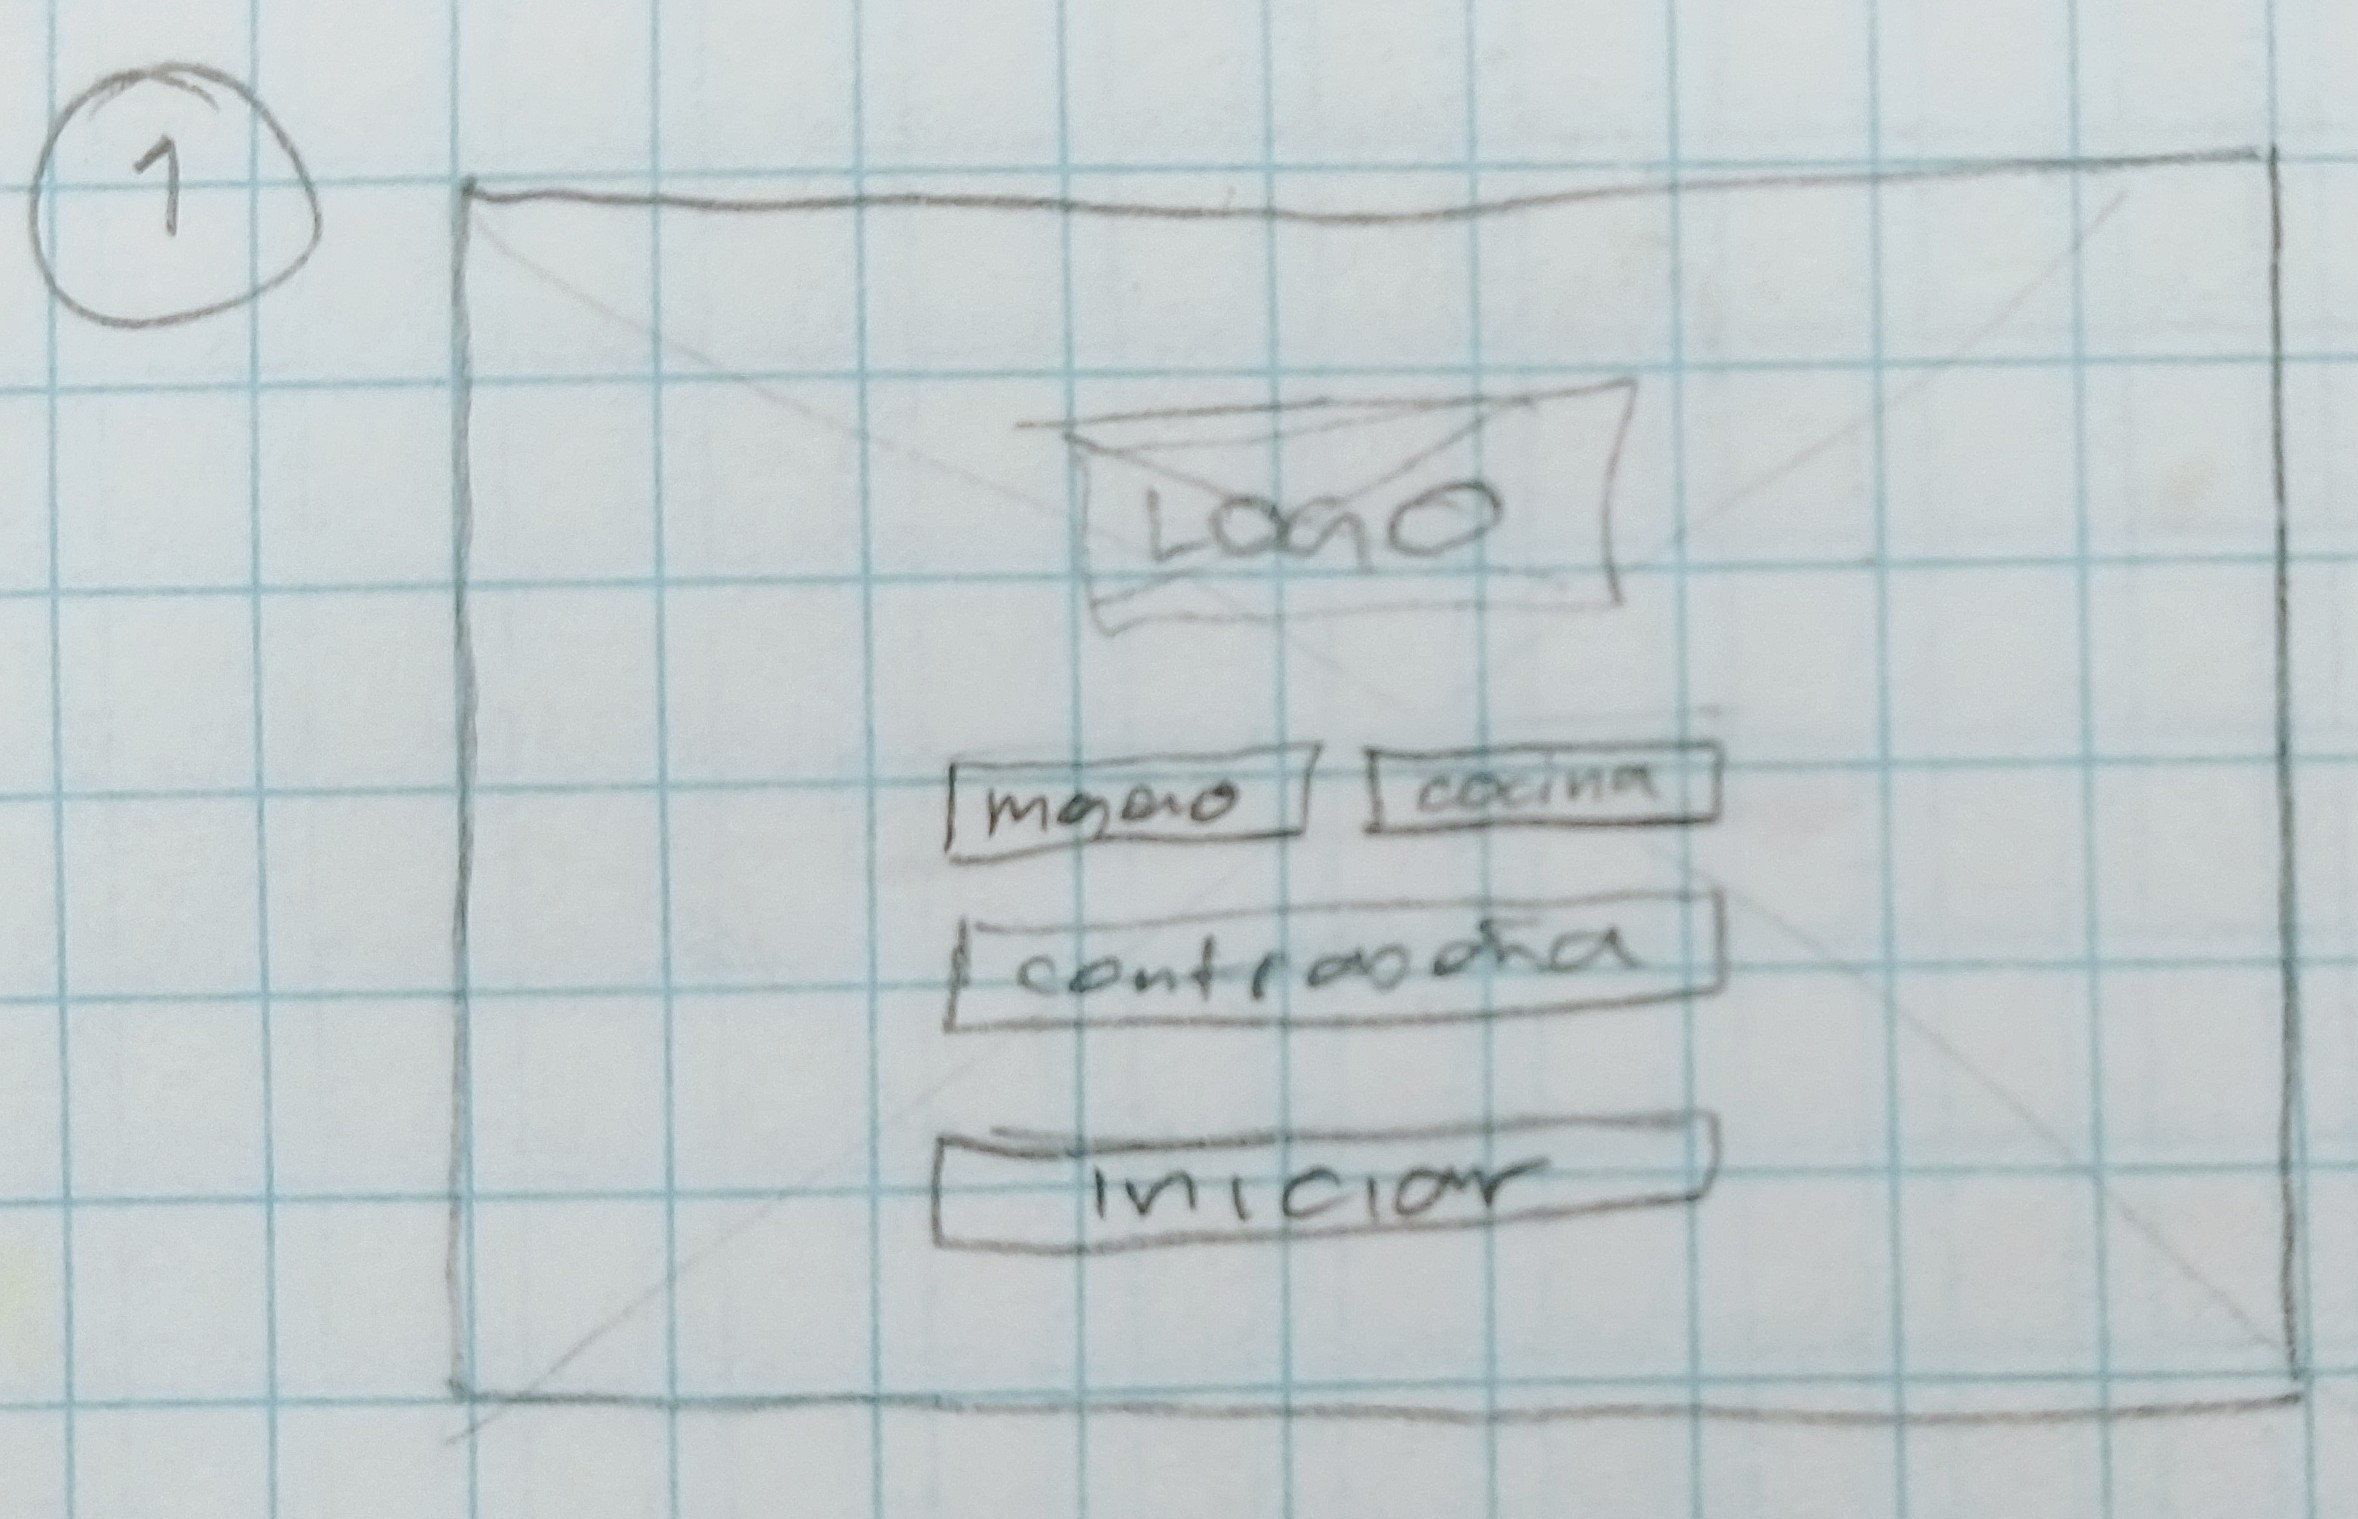 1
LOGO
mesero
cocina
contraseña
iniciar